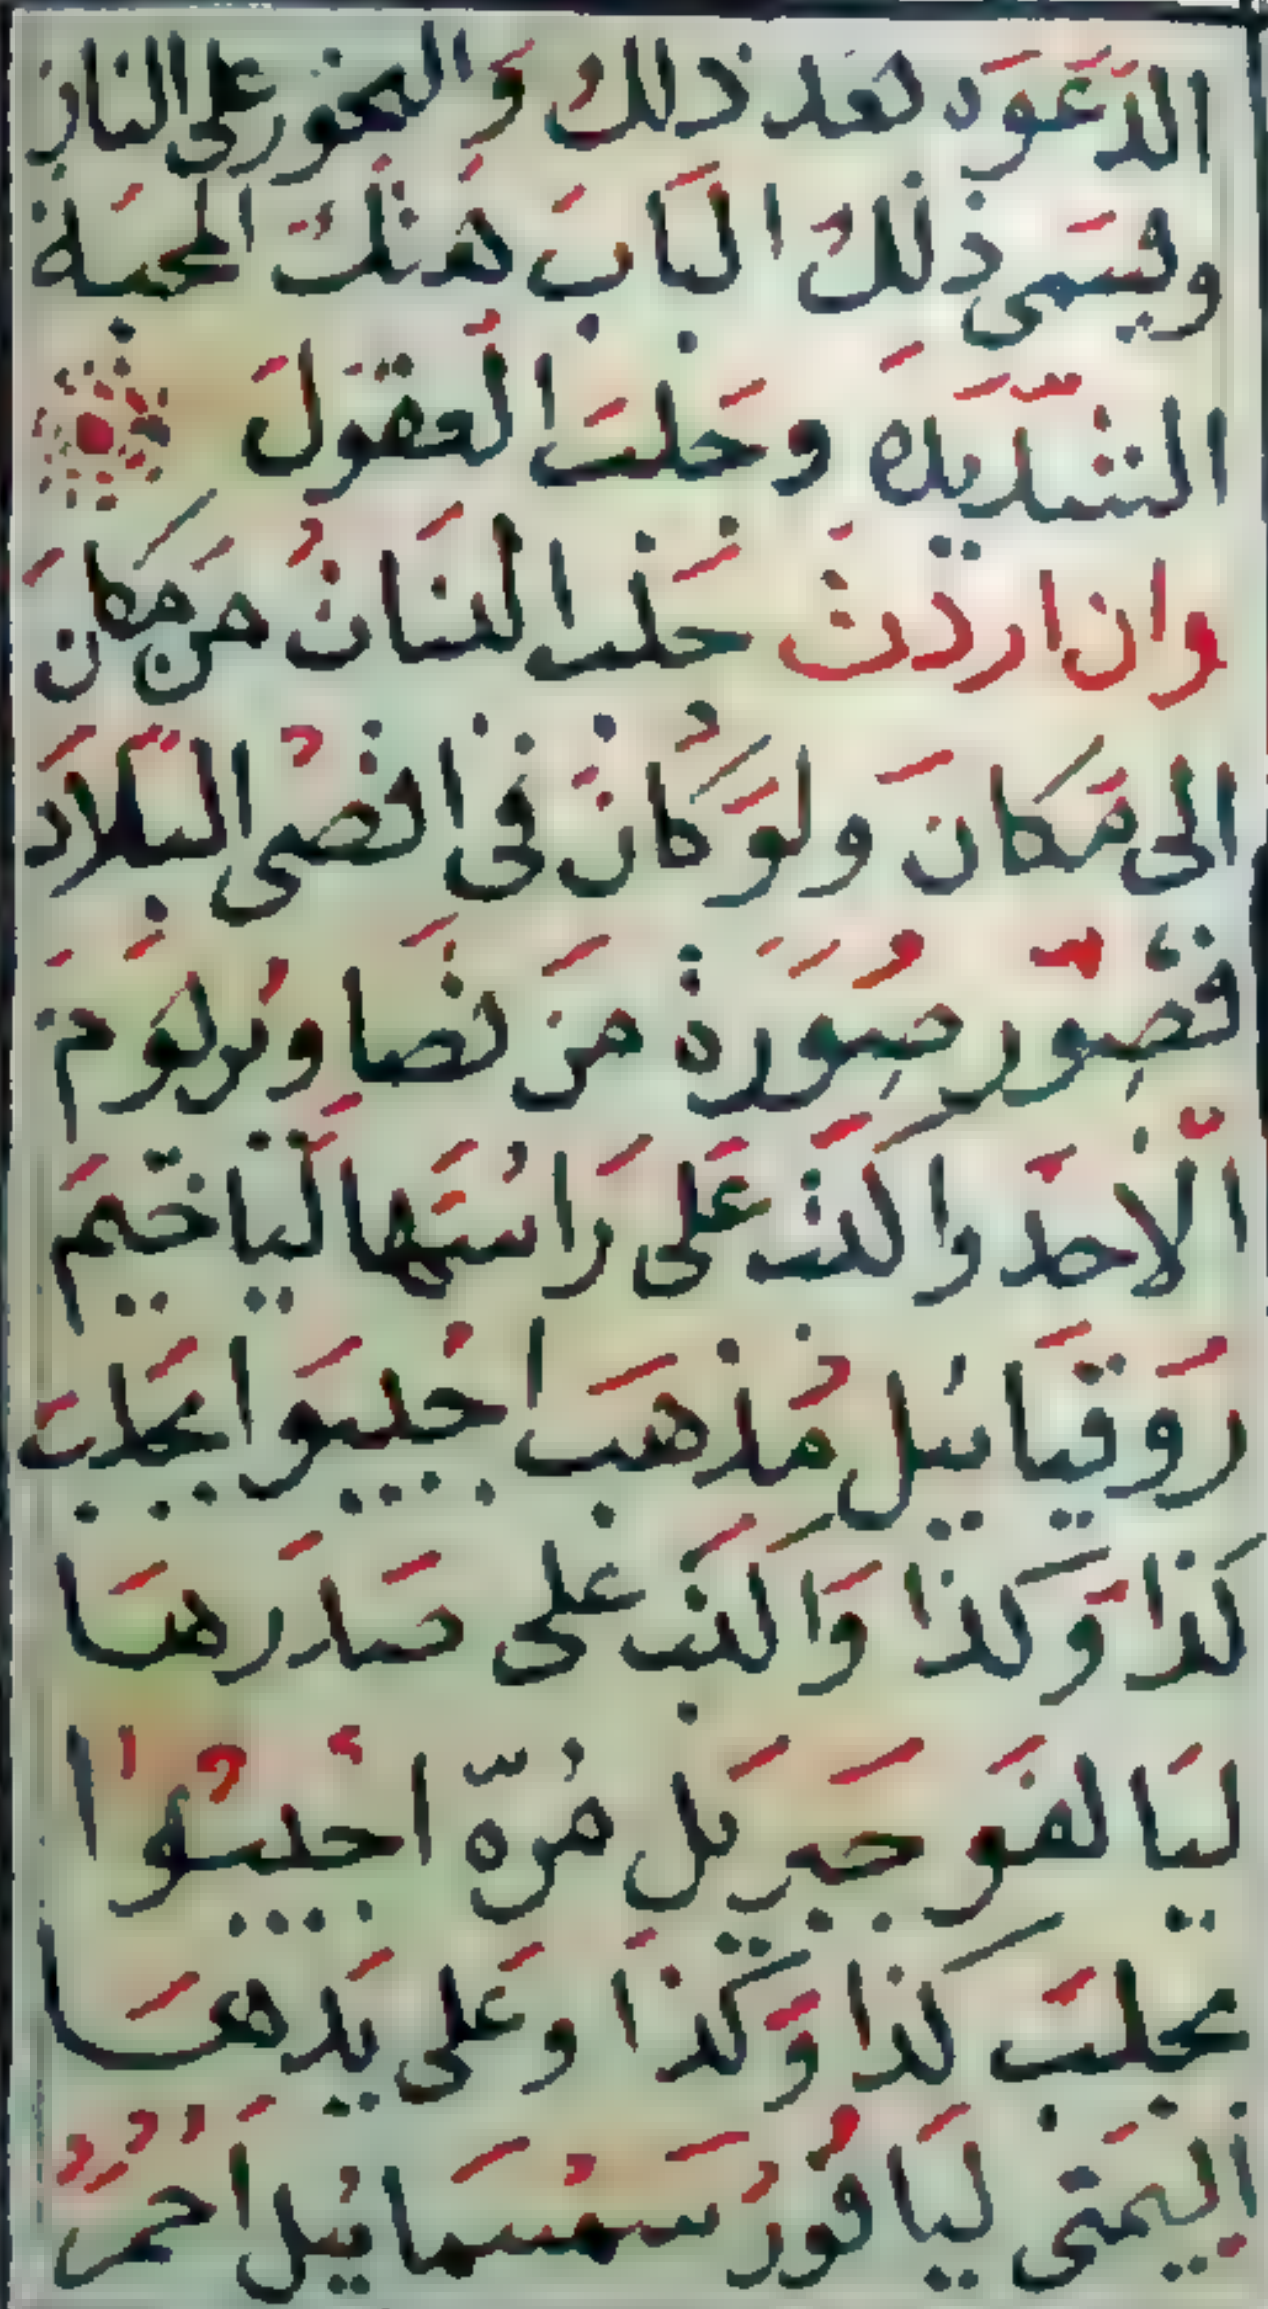 الدعوه بعد ذلك والبخور على النار
ويسمى ذلك الباب هتك المحبة
الشديده وجلب العقول
وان اردت جلب البنات من مكان
الى مكان ولو كان فى اقصى البلاد
فصور صورة من بيضا ويوم
الاحد واكتب على راسها ليا خيم
روقيائيل مذهب اجيبوا بجلب
كذا وكذا واكتب على صدرها
ليا لغو جبريل مره اجيبوا
بجلب كذا وكذا وعلى يدها
اليمنى ليا قور سمسمائيل احمر